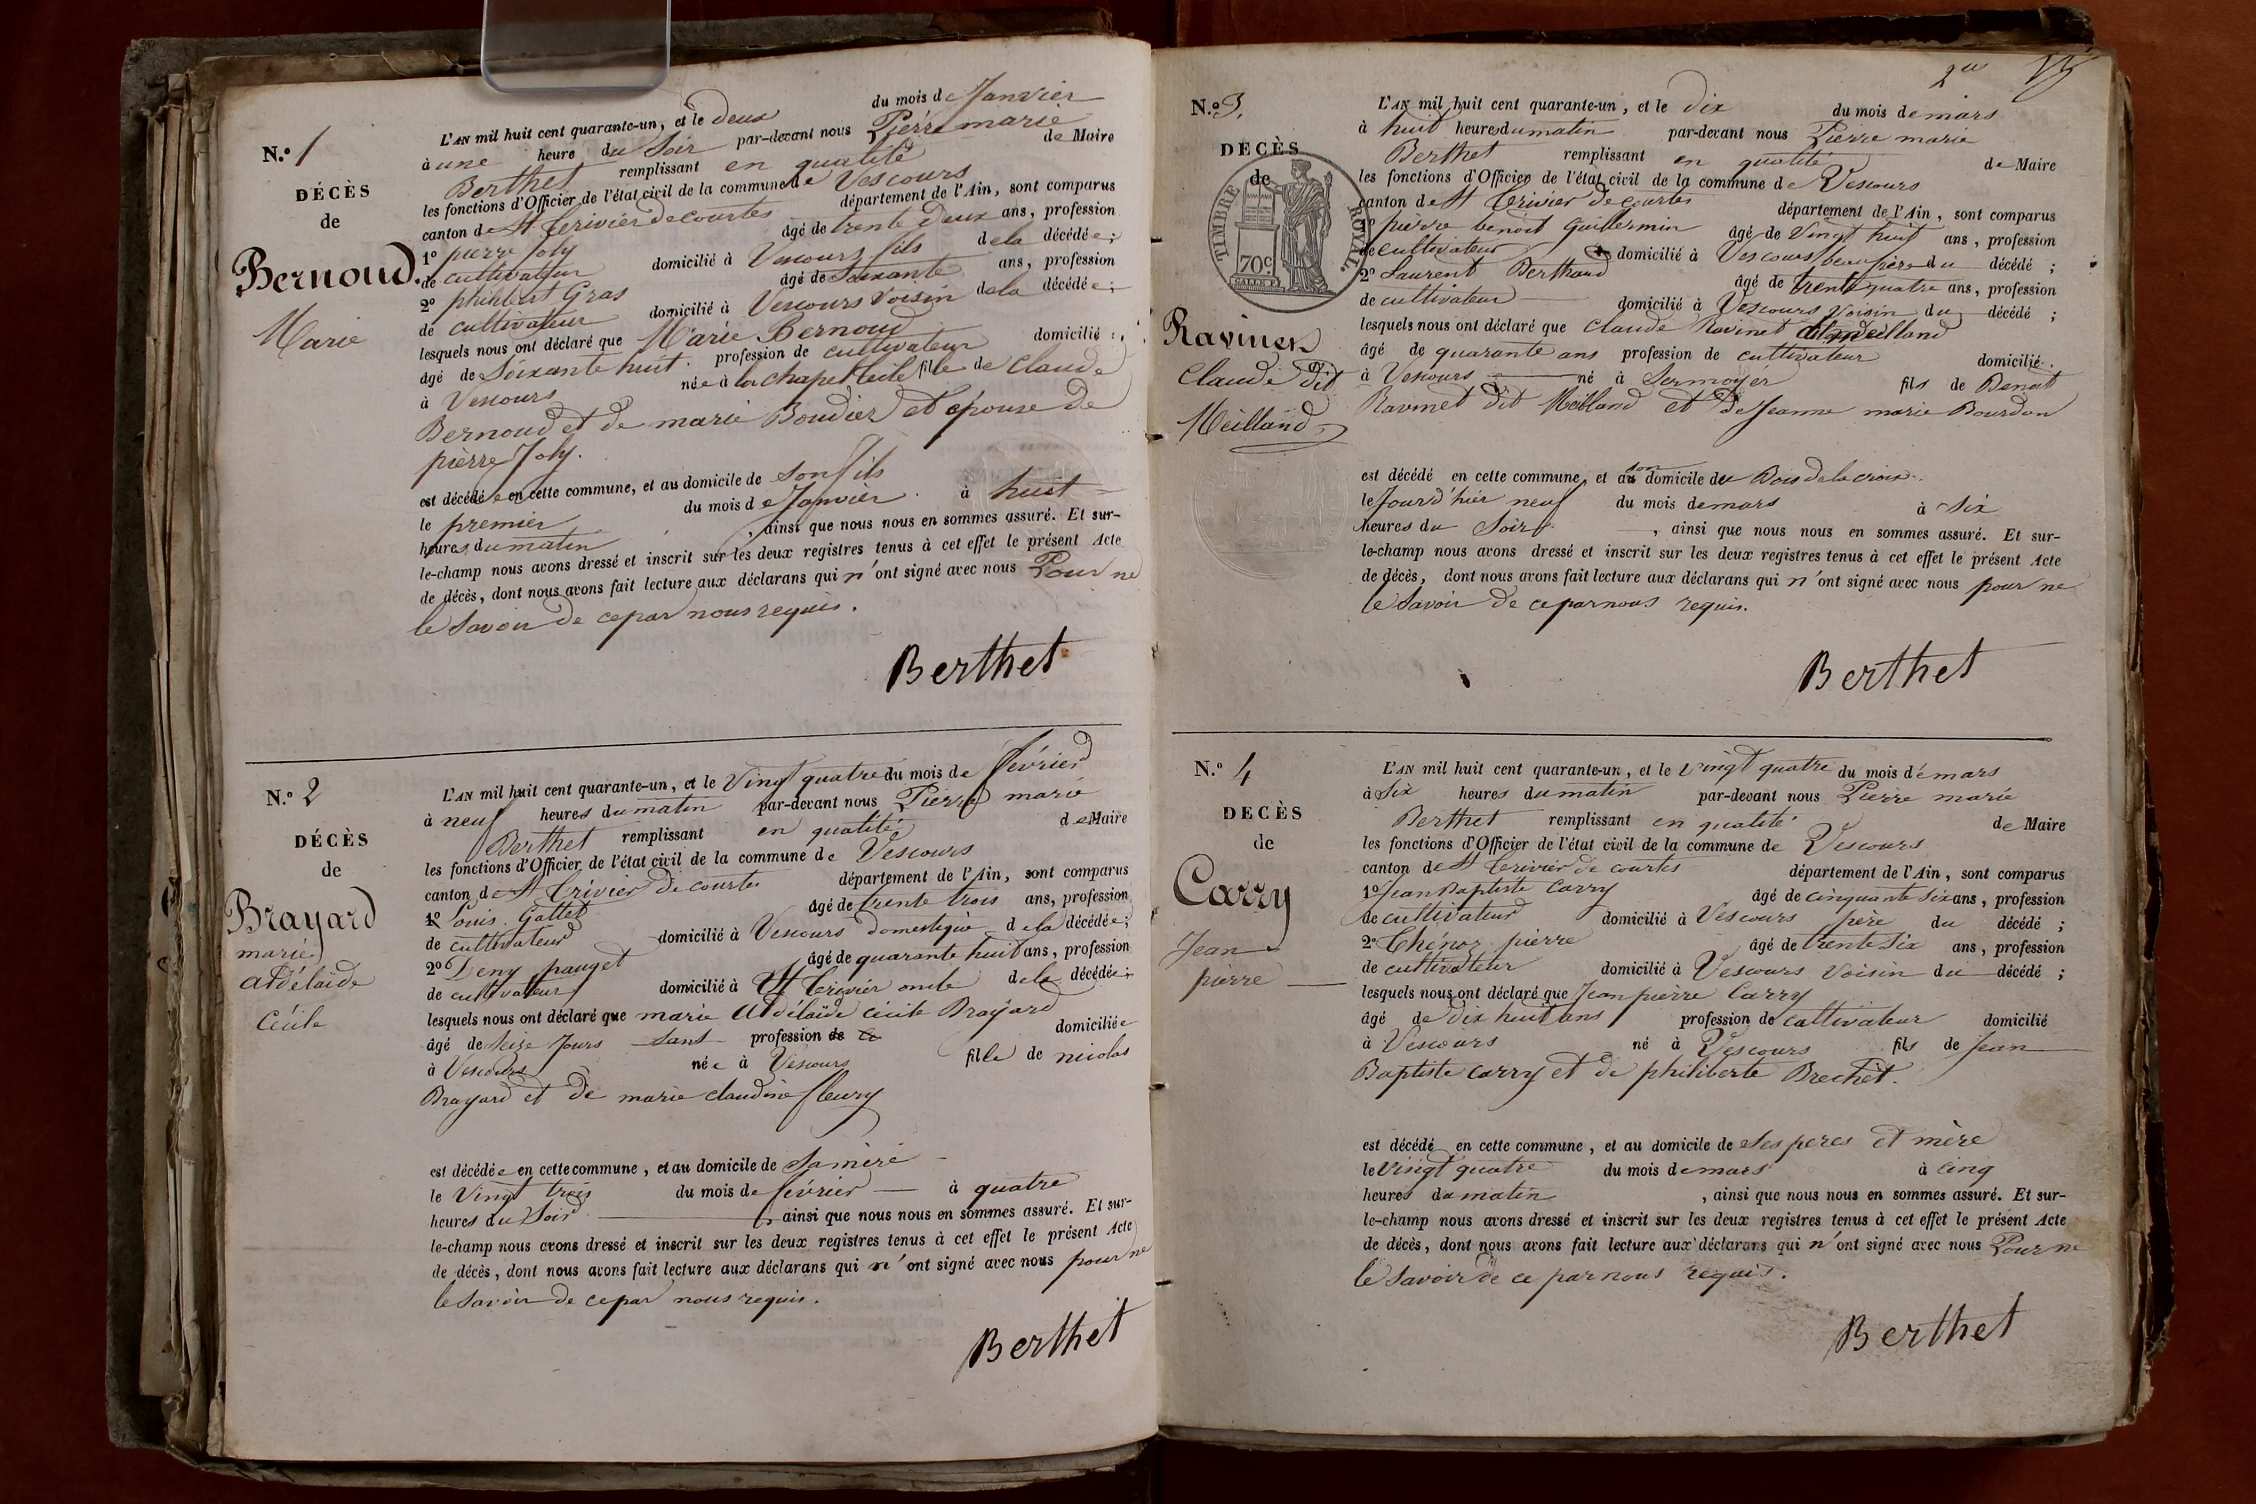 N.o 1
DÉCÈS
de
Bernoud.
Marie
L'AN mil huit cent quarante-un, et le deux du mois de Janvier
à une heure du Soir par-devant nous Pierre marie
Berthet remplissant en qualité de Maire
les fonctions d'Officier de l'état civil de la commune de Vescours
canton de St Trivier de courtes département de l'Ain, sont comparus
1o pierre Joly âgé de trente deux ans, profession
de cultivateur domicilié à Vescours fils de la décédée;
2o philibert Gras âgé de Soixante ans, profession
de cultivateur domicilié à Vescours Voisin de la décédée;
lesquels nous ont déclaré que Marie Bernoud
âgé de Soixante huit profession de cultivateur domicilié
à Vescours née à la chapelle fille de Claude
Bernoud et de marie Boudier et épouse de
pierre Joly.
est décédée en cette commune, et au domicile de son fils
le premier du mois de Janvier à huit
heures du matin, ainsi que nous nous en sommes assuré. Et sur-
le-champ nous avons dressé et inscrit sur les deux registres tenus à cet effet le présent Acte
de décès, dont nous avons fait lecture aux déclarans qui n'ont signé avec nous Pour ne
le Savoir de ce par nous requis.
Berthet
N.o 2
DÉCÈS
de
Brayard
marie
adélaïde
Cécile
L'AN mil huit cent quarante-un, et le Vingt quatre du mois de février
à neuf heures du matin par-devant nous Pierre marie
Berthet remplissant en qualité de Maire
les fonctions d'Officier de l'état civil de la commune de Vescours
canton de St Trivier de courtes département de l'Ain, sont comparus
1o Louis Gallet âgé de trente trois ans, profession
de cultivateur domicilié à Vescours domestique de la décédée;
2o Deny pauget âgé de quarante huit ans, profession
de cultivateur domicilié à St Trivier oncle de la décédée;
lesquels nous ont déclaré que marie Adélaïde cécile Brayard
âgé de Seize Jours Sans profession de domiciliée
à Vescours née à Vescours fille de nicolas
Brayard et de marie claudine fleury
est décédée en cette commune, et au domicile de Sa mère
le Vingt trois du mois de février à quatre
heures du Soir, ainsi que nous nous en sommes assuré. Et sur-
le-champ nous avons dressé et inscrit sur les deux registres tenus à cet effet le présent Acte
de décès, dont nous avons fait lecture aux déclarans qui n'ont signé avec nous pour ne
le Savoir de ce par nous requis.
Berthet
N.o 3.
DÉCÈS
de
TIMBRE ROYAL.
70c
Ravinet
Claude Dit
Meilland
L'AN mil huit cent quarante-un, et le dix du mois de mars
à huit heures du matin par-devant nous Pierre marie
Berthet remplissant en qualité de Maire
les fonctions d'Officier de l'état civil de la commune de Vescours
canton de St Trivier de courtes département de l'Ain, sont comparus
1o pierre benoit Guillermin âgé de Vingt huit ans, profession
de cultivateur domicilié à Vescours beau frère du décédé;
2o Laurent Berthoud âgé de trente quatre ans, profession
de cultivateur domicilié à Vescours Voisin du décédé;
lesquels nous ont déclaré que claude Ravinet dit meilland
âgé de quarante ans profession de cultivateur domicilié
à Vescours né à Sermoyer fils de Benoit
Ravinet dit Meilland et de Jeanne marie Bourdon
est décédé en cette commune, et au son domicile du Bois de la croix
le Jourd'hier neuf du mois de mars à Six
heures du Soir, ainsi que nous nous en sommes assuré. Et sur-
le-champ nous avons dressé et inscrit sur les deux registres tenus à cet effet le présent Acte
de décès, dont nous avons fait lecture aux déclarans qui n'ont signé avec nous pour ne
le Savoir de ce par nous requis.
Berthet
N.o 4
DÉCÈS
de
Carry
Jean
pierre
L'AN mil huit cent quarante-un, et le vingt quatre du mois de mars
à Six heures du matin par-devant nous Pierre marie
Berthet remplissant en qualité de Maire
les fonctions d'Officier de l'état civil de la commune de Vescours
canton de St Trivier de courtes département de l'Ain, sont comparus
1o Jean Baptiste Carry âgé de cinquante Six ans, profession
de cultivateur domicilié à Vescours père du décédé;
2o Thénoz pierre âgé de trente Six ans, profession
de cultivateur domicilié à Vescours Voisin du décédé;
lesquels nous ont déclaré que Jean pierre Carry
âgé de dix huit ans profession de cultivateur domicilié
à Vescours né à Vescours fils de Jean
Baptiste carry et de philiberte Brechet.
est décédé en cette commune, et au domicile de Ses peres et mère
le Vingt quatre du mois de mars à cinq
heures du matin, ainsi que nous nous en sommes assuré. Et sur-
le-champ nous avons dressé et inscrit sur les deux registres tenus à cet effet le présent Acte
de décès, dont nous avons fait lecture aux déclarans qui n'ont signé avec nous Pour ne
le Savoir de ce par nous requis.
Berthet